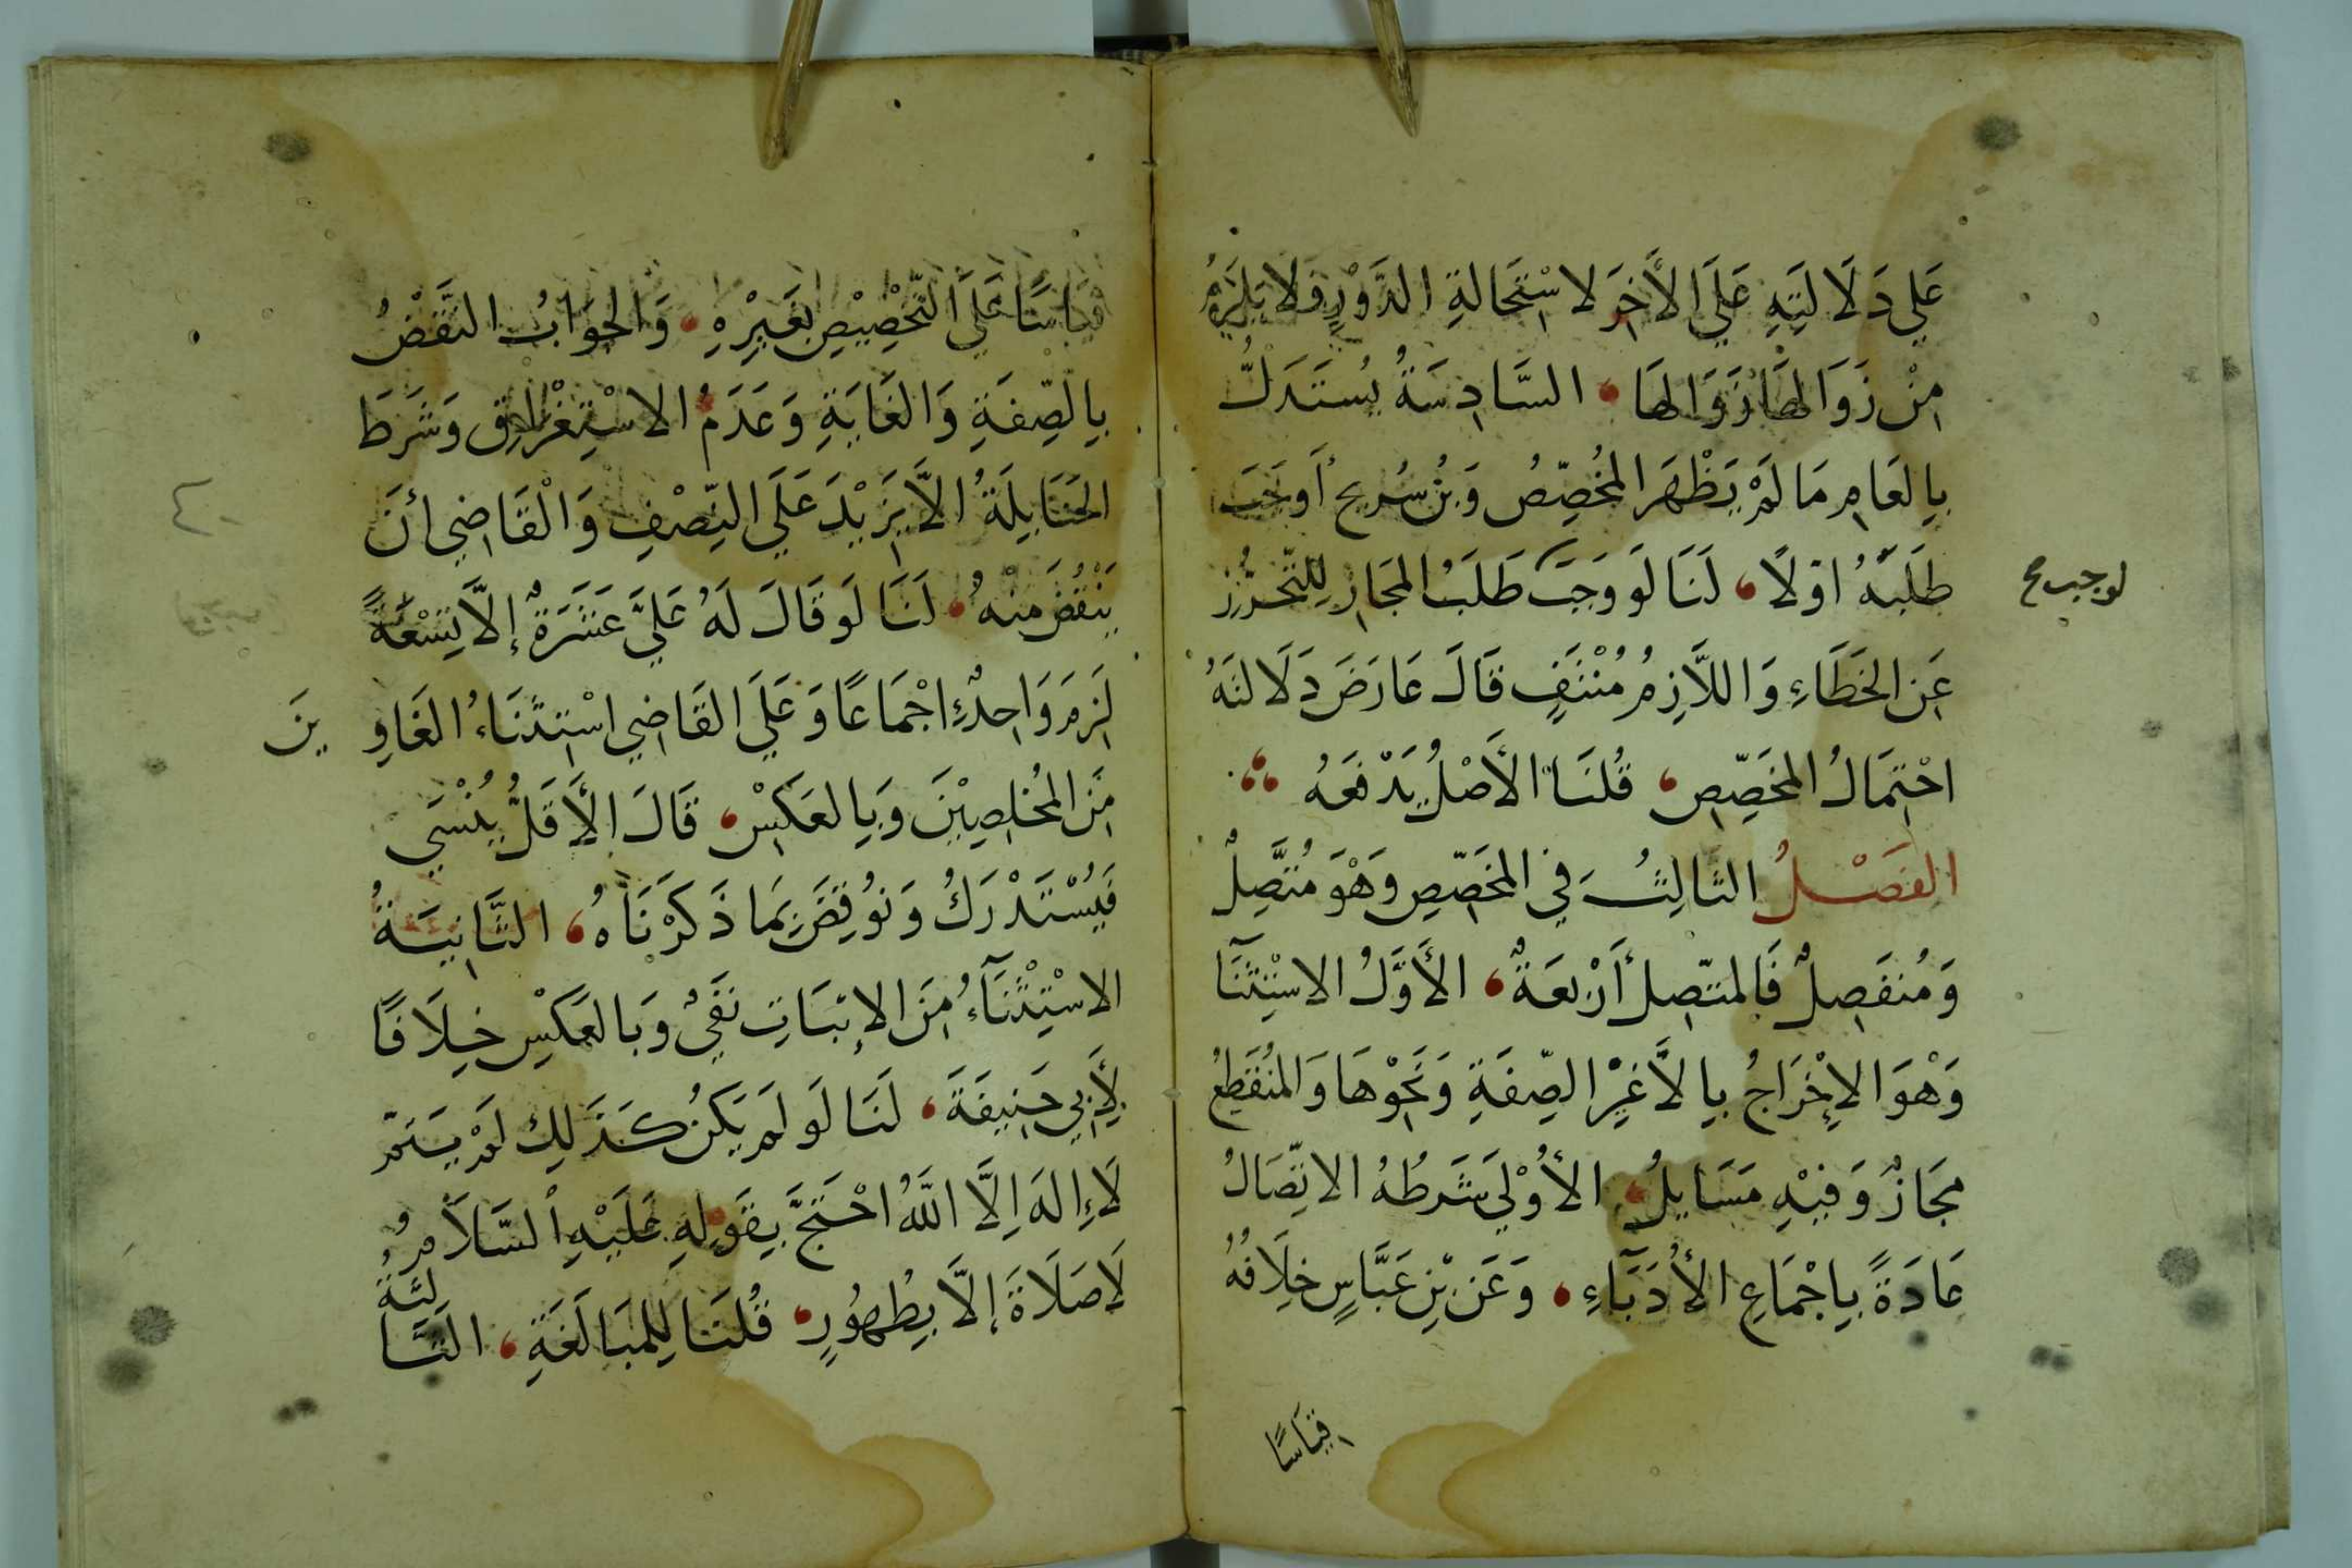 عَلَي دَلَالَتِهِ عَلَي الأَخِرَ لاسْتِحَالةِ الدَّوْرِ فَلا يَلزَمُ
مِنْ زَوَالهَا زَوَالهَا، السَّادِسَةُ يُستَدَلُّ
بِالعَامِ مَا لَمْ يَظْهَر المُخُصِّصُ وَبْنُ سُريج أَوجَبَ
طَلَبَهُ اوّلاً، لَنَا لَو وَجَبَ طَلَبُ المجَازِ لِلتّحَرُّزِ
لوجب صح
عَنِ الخَطَاءِ وَاللاَّزِمُ مُنْتَفٍ قَالَ عَارَضَ دَلَالَتَهُ
احْتِمَالُ المخَصِّصِ، قُلنَا الأَصْلُ يَدْفَعُهُ
الفَصْلُ الثالِثُ في المخَصِّصِ وَهْوَ مُتَّصِلٌ
وَمُنفَصِلٌ فَالمتّصِلُ أَرْبعَةٌ، الأَوَّلُ الاسْتِثنَآ
وَهْوَ الاِخْرَاجُ بِالاَّ غيْرِ الصِّفَةِ وَنَحْوِهَا وَالمنُقَطِعُ
مجَازٌ وَفيْهِ مَسَايلُ، الأُوْلَي شَرطُهُ الاتِّصَالُ
عَادَةً بِاجْمَاعِ الأُدَبَآءِ، وَعَن بْنِ عَبَّاسٍ خِلَافُهُ
قيَاسًا
قيَاسًا عَلَي التّخْصِيْصِ بغَيرِهِ، وَالجوَابُ النقَضُ
بِالصِّفَةِ وَالغَايَةِ وَعَدَمُ الاسْتِغْرَاقِ وَشَرَطَ
الحنَابِلَةُ الاَّ يَزِيْدَ عَلَي النِّصْفِ وَالْقَاضِي أنَ
يَنْقُصَ مِنْهُ، لَنَا لَو قَالَ لَهُ عَلَيَّ عَشَرَةٌ إلاَّ تِسْعَةً
لَزِمَ وَاحِدٌ اجْمَاعًا وَعَلَي القَاضِي اسْتِثنَاءُ الغَاوِ
ينَ
مِنَ المُخلصِيْنَ وَبِالعَكسْ، قَالَ الأَقَلُّ يُنْسَي
فَيُسْتَدْرَكُ وَنُوقِضَ بِمَا ذَكَرْنَاهُ، الثَّانِيَةُ
الاسْتِثْنَآءُ مِنَ الإثبَاتِ نَفْيٌ وَبالعَكْسِ خِلَافًا
لأَبِي حَنِيفَةَ، لَنَا لَو لَم يَكُنْ كَذَلِكَ لَمْ يَتمّ
لَاإِلهَ اِلَّا اللَّهُ احْتَجَّ بِقَولِهِ عَلَيْهِ السَّلاَمُ
لَاصَلَاةَ إلاَّ بِطُهُورٍ، قُلنَا لِلمبَالَغَةِ، الثَّا
لِثَةُ